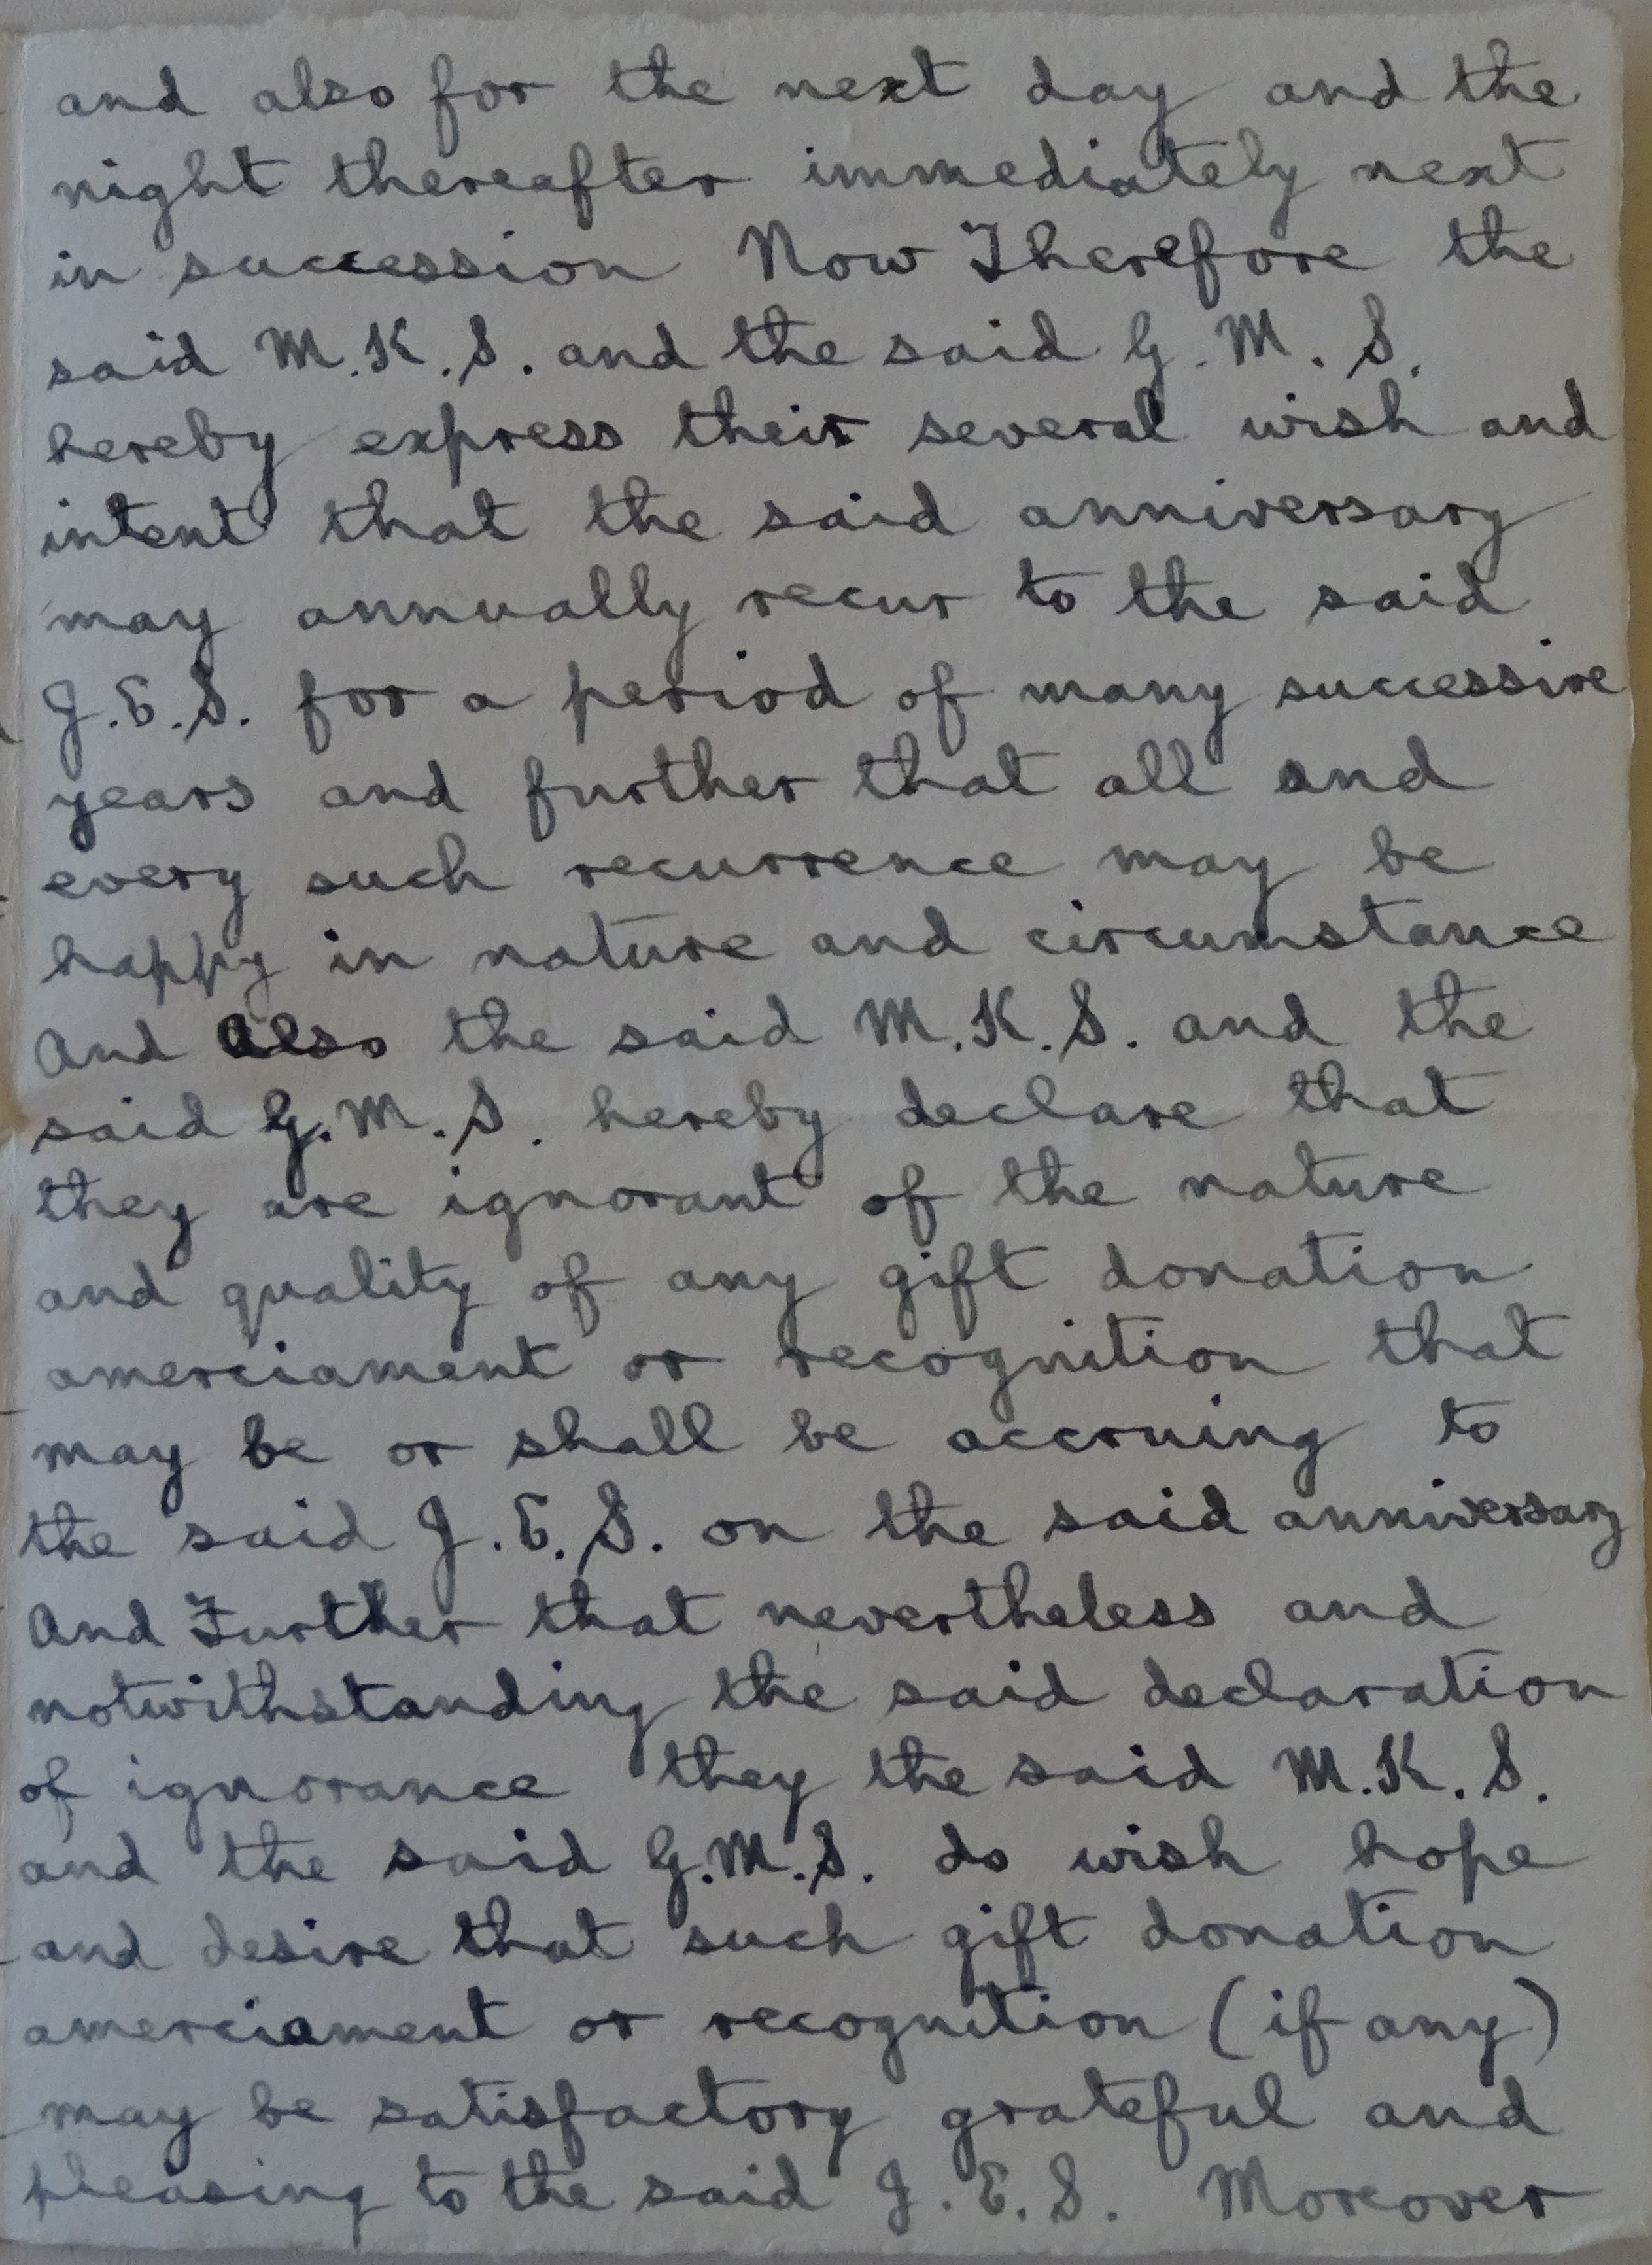 and also for the next day and the
night thereafter immediately next
in succession Now Therefore the
said M.K.S. and the said G.M.S.
hereby express their several wish and
intent that the said anniversary
may annually recur to the said
J.E.S. for a period of many successive
years and further that all and
every such recurrence may be
happy in nature and circumstance
And Also the said M.K.S. and the
said G.M.S. hereby declare that
they are ignorant of the nature
and quality of any gift donation
amerciament or recognition that
may be or shall be accruing to
the said J.E.S. on the said anniversary
And Further that nevertheless and
notwithstanding the said declaration
of ignorance they the said M.K.S.
and the said G.M.S. do wish hope
and desire that such gift donation
amerciament or recognition (if any)
may be satisfactory grateful and
pleasing to the said J.E.S. Moreover